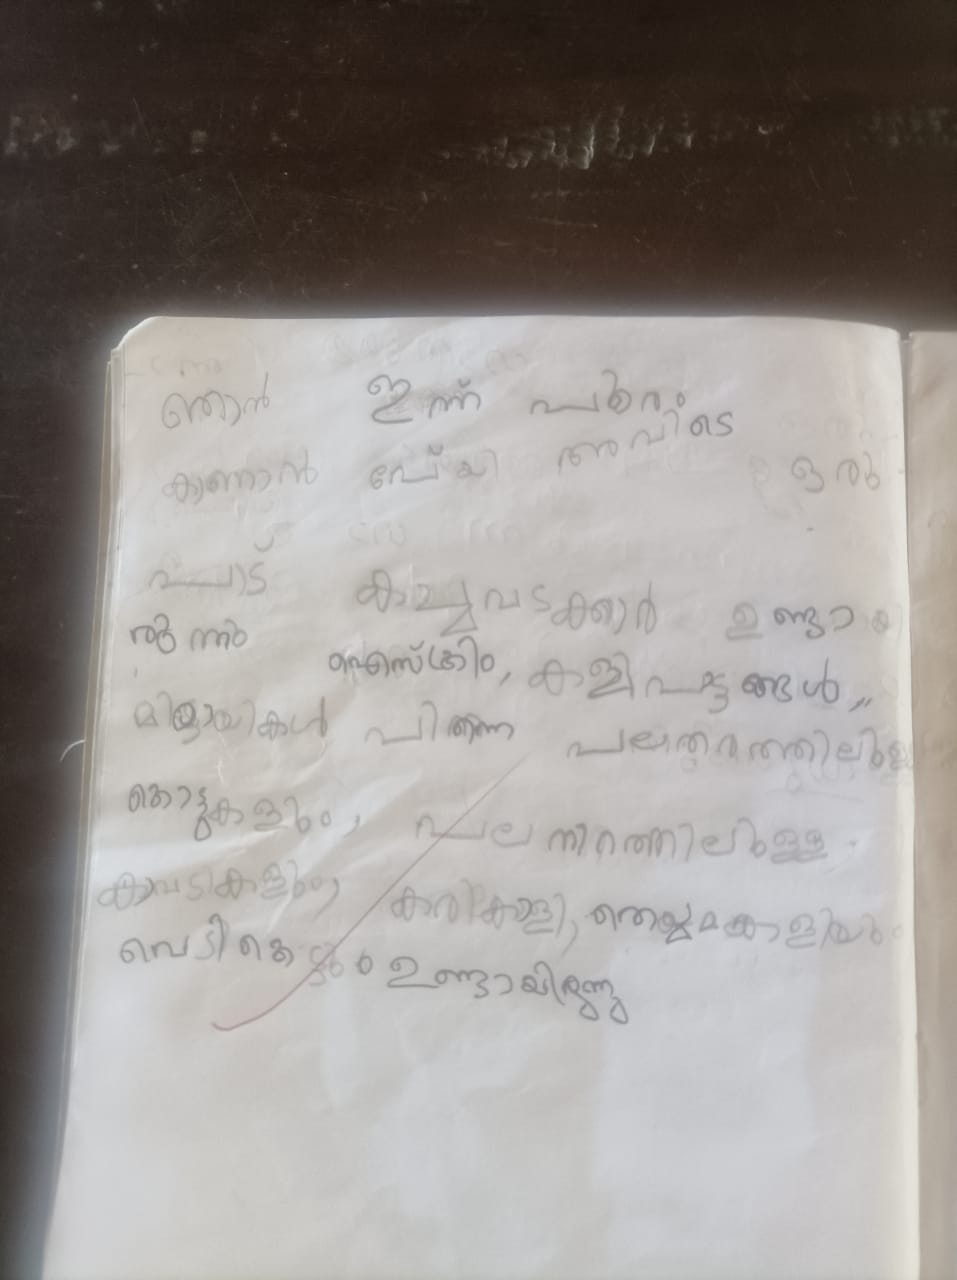 ഞാൻ ഇന്ന് പൂരം
കാണാൻ പോയി അവിടെ ഒരു
പാട് കച്ചവടക്കാർ ഉണ്ടായി
രുന്നു ഐസ്ക്രീം, കളിപ്പാട്ടങ്ങൾ,,
മിഠായികൾ പിന്നെ പലതരത്തിലുള്ള
കൊട്ടുകളും, പല നിറത്തിലുള്ള
കാവടികളും, കരികാളി,
വെടികെട്ടും ഉണ്ടായിരുന്നു